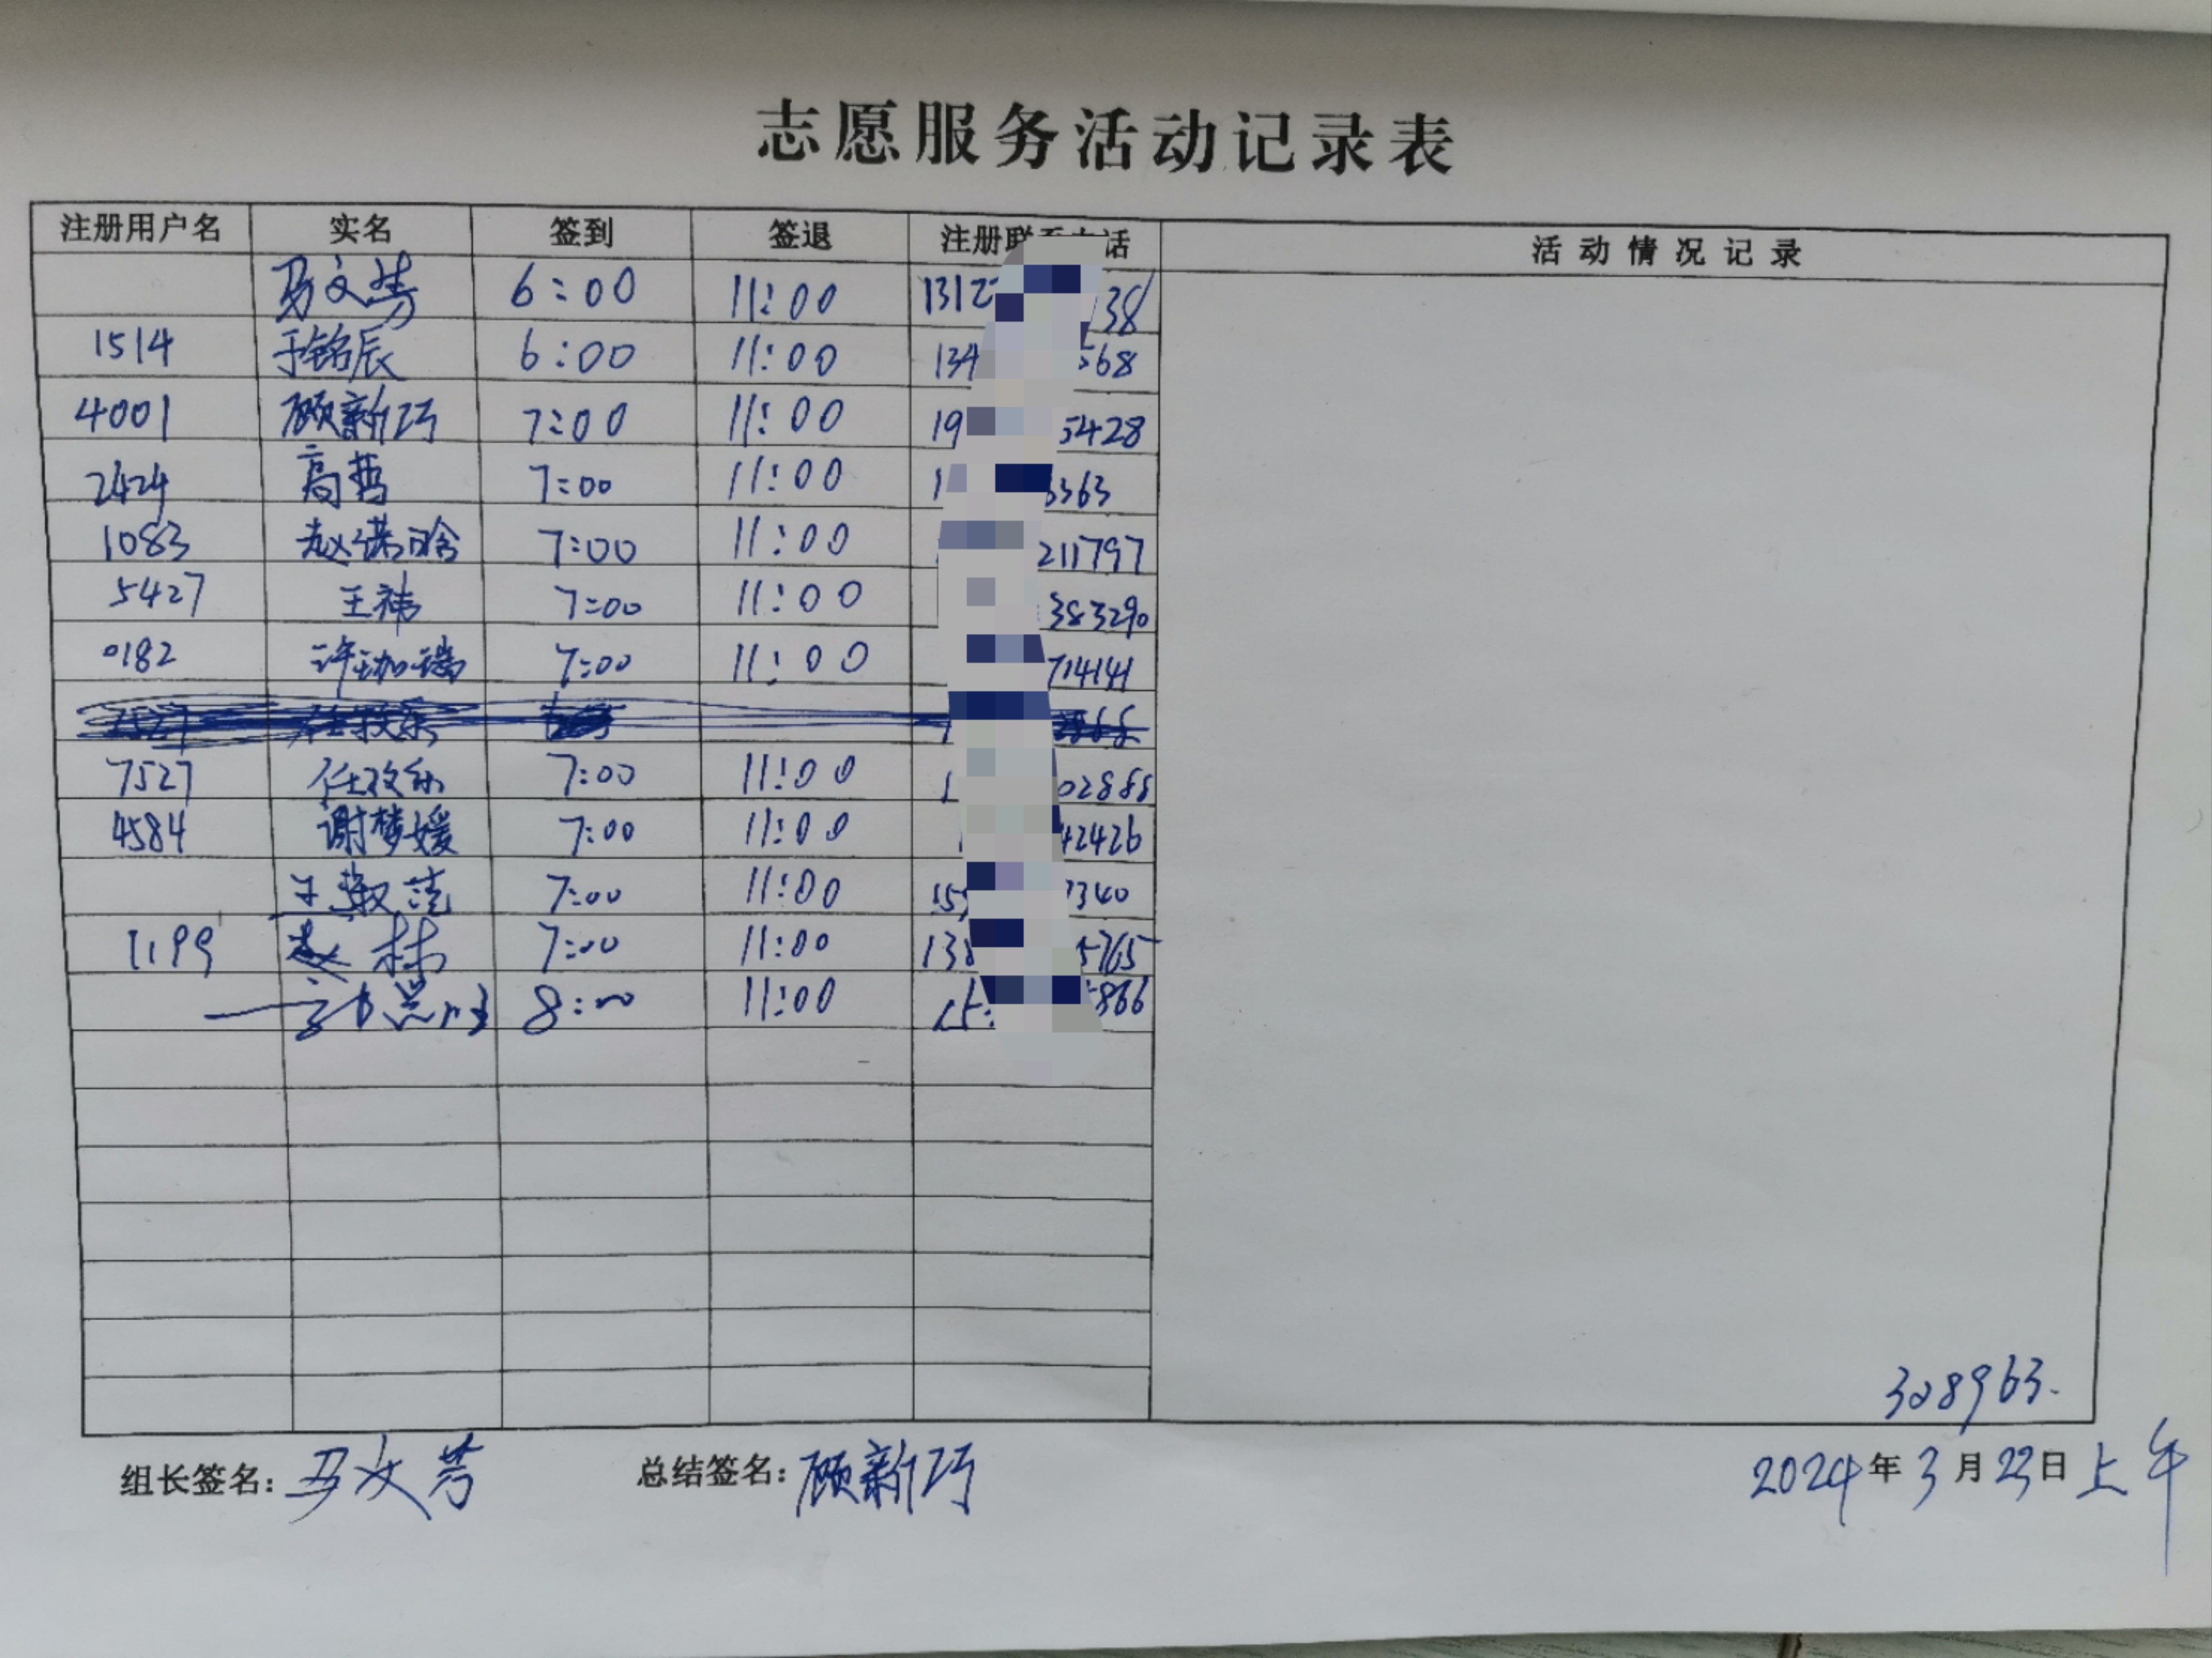 志愿服务活动记录表
注册用户名 实名 签到 签退 注册联系电话 活动情况记录
马文芳 6:00 11:00 1312 38
1514 于铭辰 6:00 11:00 134 568
4001 顾新巧 7:00 11:00 19 5428
2424 高哲 7:00 11:00 1 6363
1083 赵诺晗 7:00 11:00 211797
5427 王祎 7:00 11:00 383290
0182 许珈瑞 7:00 11:00 714141
7527 7:00 11:00 1 02888
4584 谢梦媛 7:00 11:00 42426
7:00 11:00 159 7340
1199 赵栋 7:00 11:00 138 5765
8:00 11:00 15 866
308963.
组长签名：马文芳 总结签名：顾新巧 2024年3月23日上午